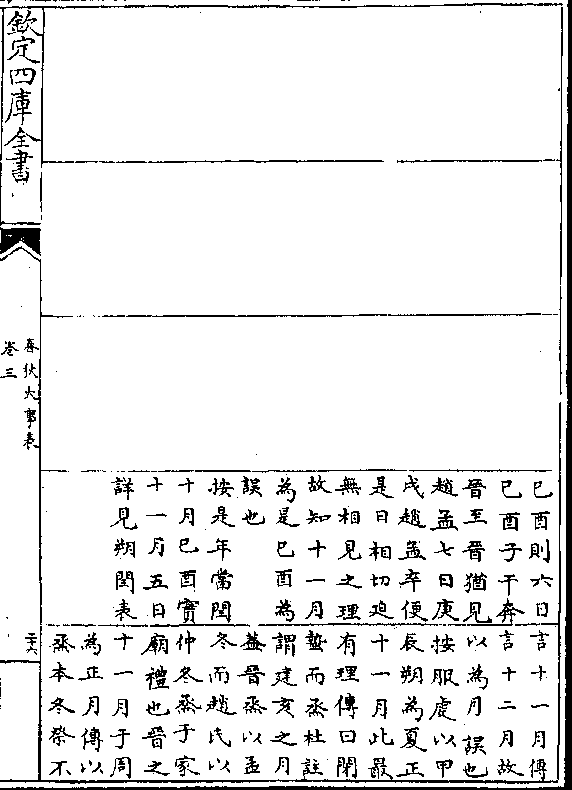 己酉則六日
己酉子干奔
晉至晉猶見
趙孟七日庚
戌趙孟卒便
是日相切迫
無相見之理
故知十一月
為是己酉為
誤也
按是年當閏
十月己酉實
十一月五日
詳見朔閏表
言十一月傳
言十二月故
以為月誤也
按服虔以甲
辰朔為夏正
十一月此最
有理傳曰閉
蟄而烝杜註
謂建亥之月
蓋晉烝以孟
冬而趙氏以
仲冬烝于家
廟禮也晉之
十一月于周
為正月傳以
烝本冬祭不
欽定四庫全書
春秋大事表
卷三
二十六